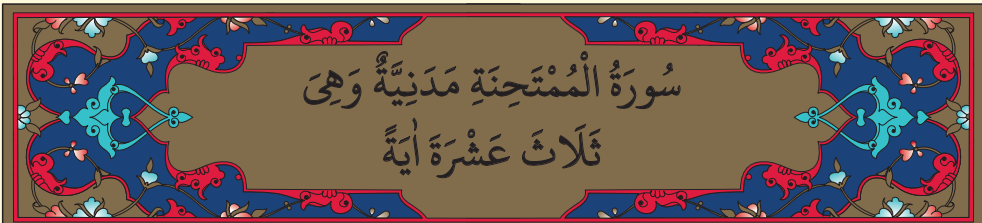 سُورَةُ الْمُمْتَحِنَةِ مَدَنِيَّةٌ وَهِىَ
ثَلَاثَ عَشْرَةَ اٰيَةً